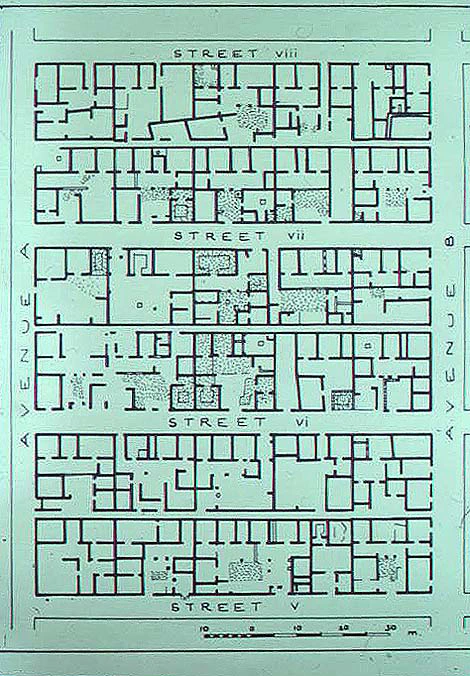 STREET viii
STREET vii
AVENUE A
AVENUE B
STREET vi
STREET V
10 0 10 20 30 m.